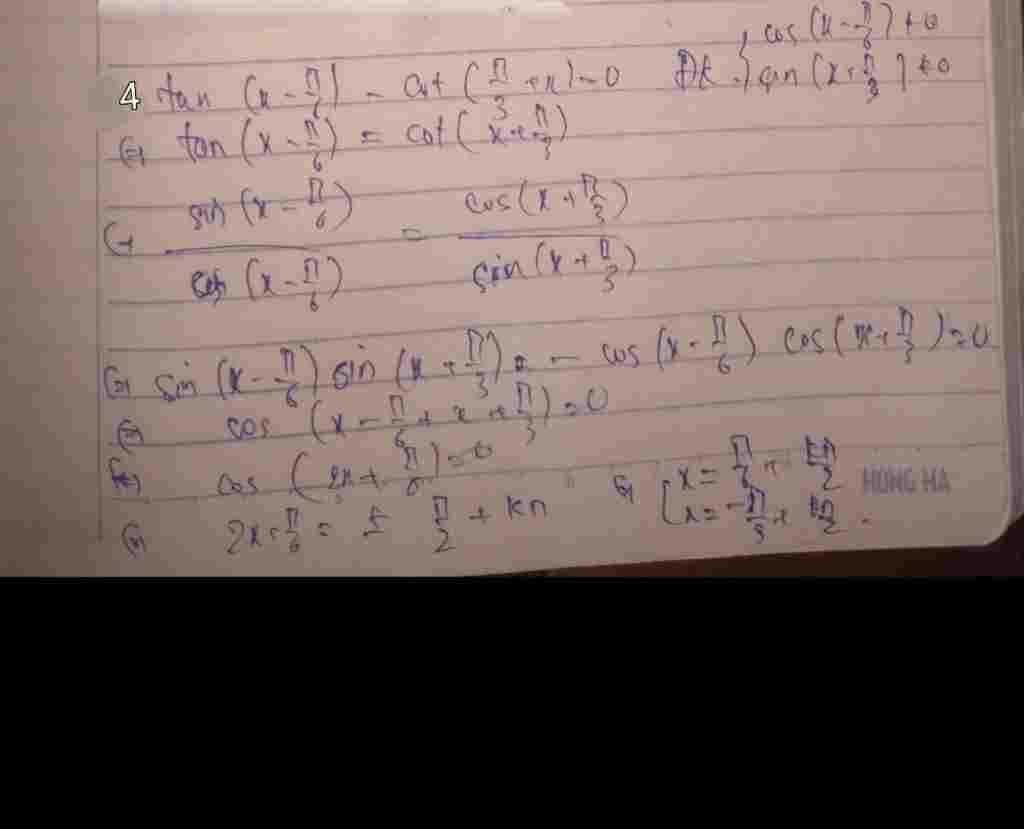 4 tan (x - π/6) - cot (π/3 + x) = 0 Đk { cos (x - π/6) ≠ 0
sin (x + π/3) ≠ 0
⇔ tan (x - π/6) = cot (x + π/3)
⇔ sin (x - π/6) / cos (x - π/6) = cos (x + π/3) / sin (x + π/3)
⇔ sin (x - π/6) sin (x + π/3) - cos (x - π/6) cos (x + π/3) = 0
⇔ cos (x - π/6 + x + π/3) = 0
⇔ cos (2x + π/6) = 0
⇔ 2x + π/6 = ± π/2 + kπ ⇔ [ x = π/6 + kπ/2
x = -π/3 + kπ/2
HONG HA